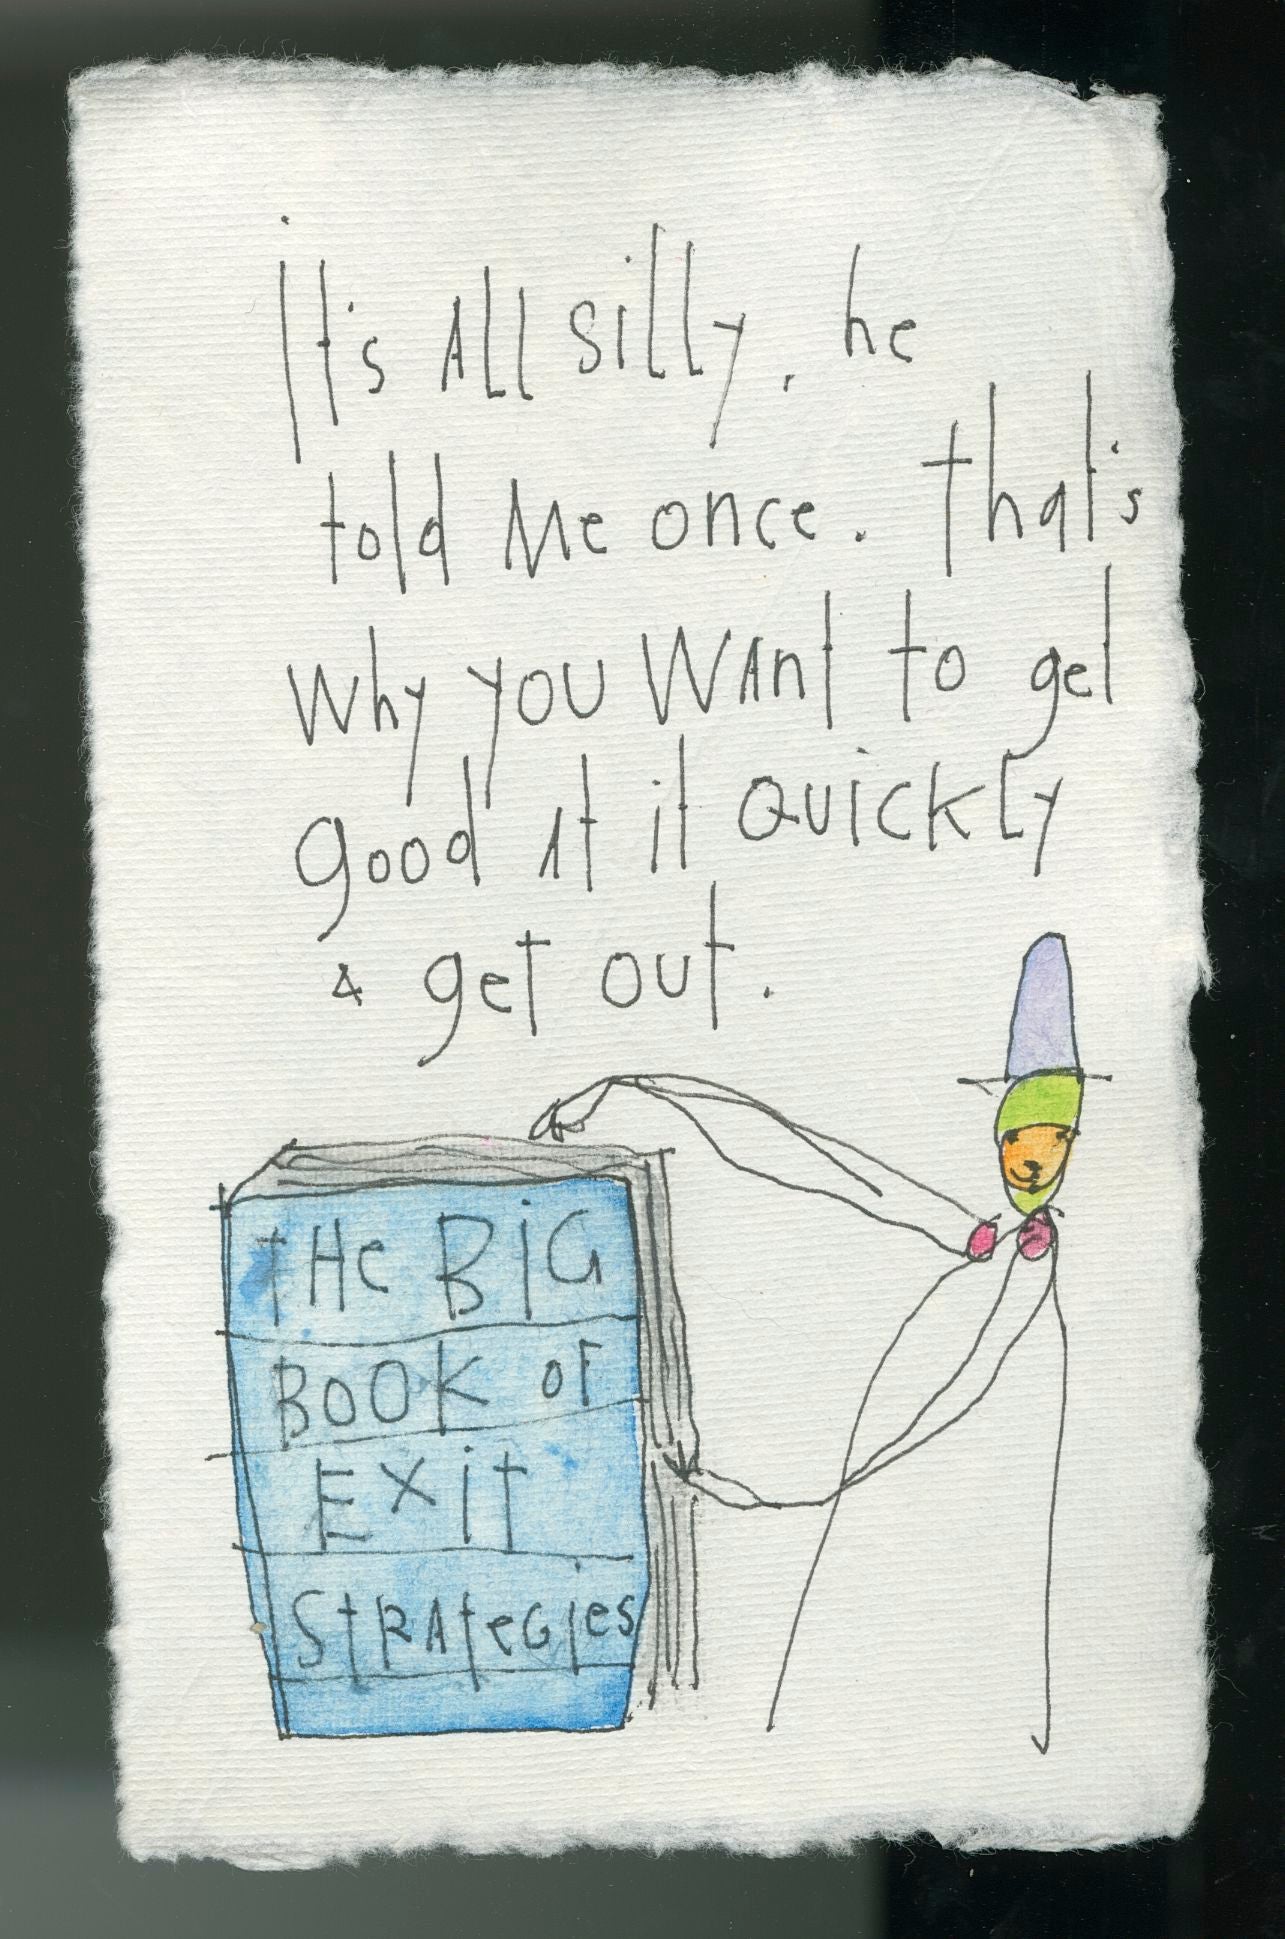 It's All silly, he
told Me once. that's
Why you WAnt to get
good At it Quickly
& get out.
tHe BiG
BOOK of
Exit
StRAteGies